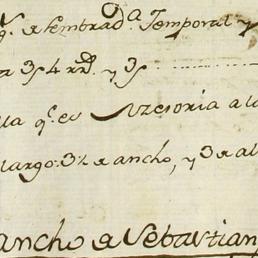 q.^e de sembrad.^a Temporal y
a 3/4 rr.^s y 3/
lla q.^e es Azesoria a la
largo: 3½ de ancho, y 3 de al
ancho de Sebastian